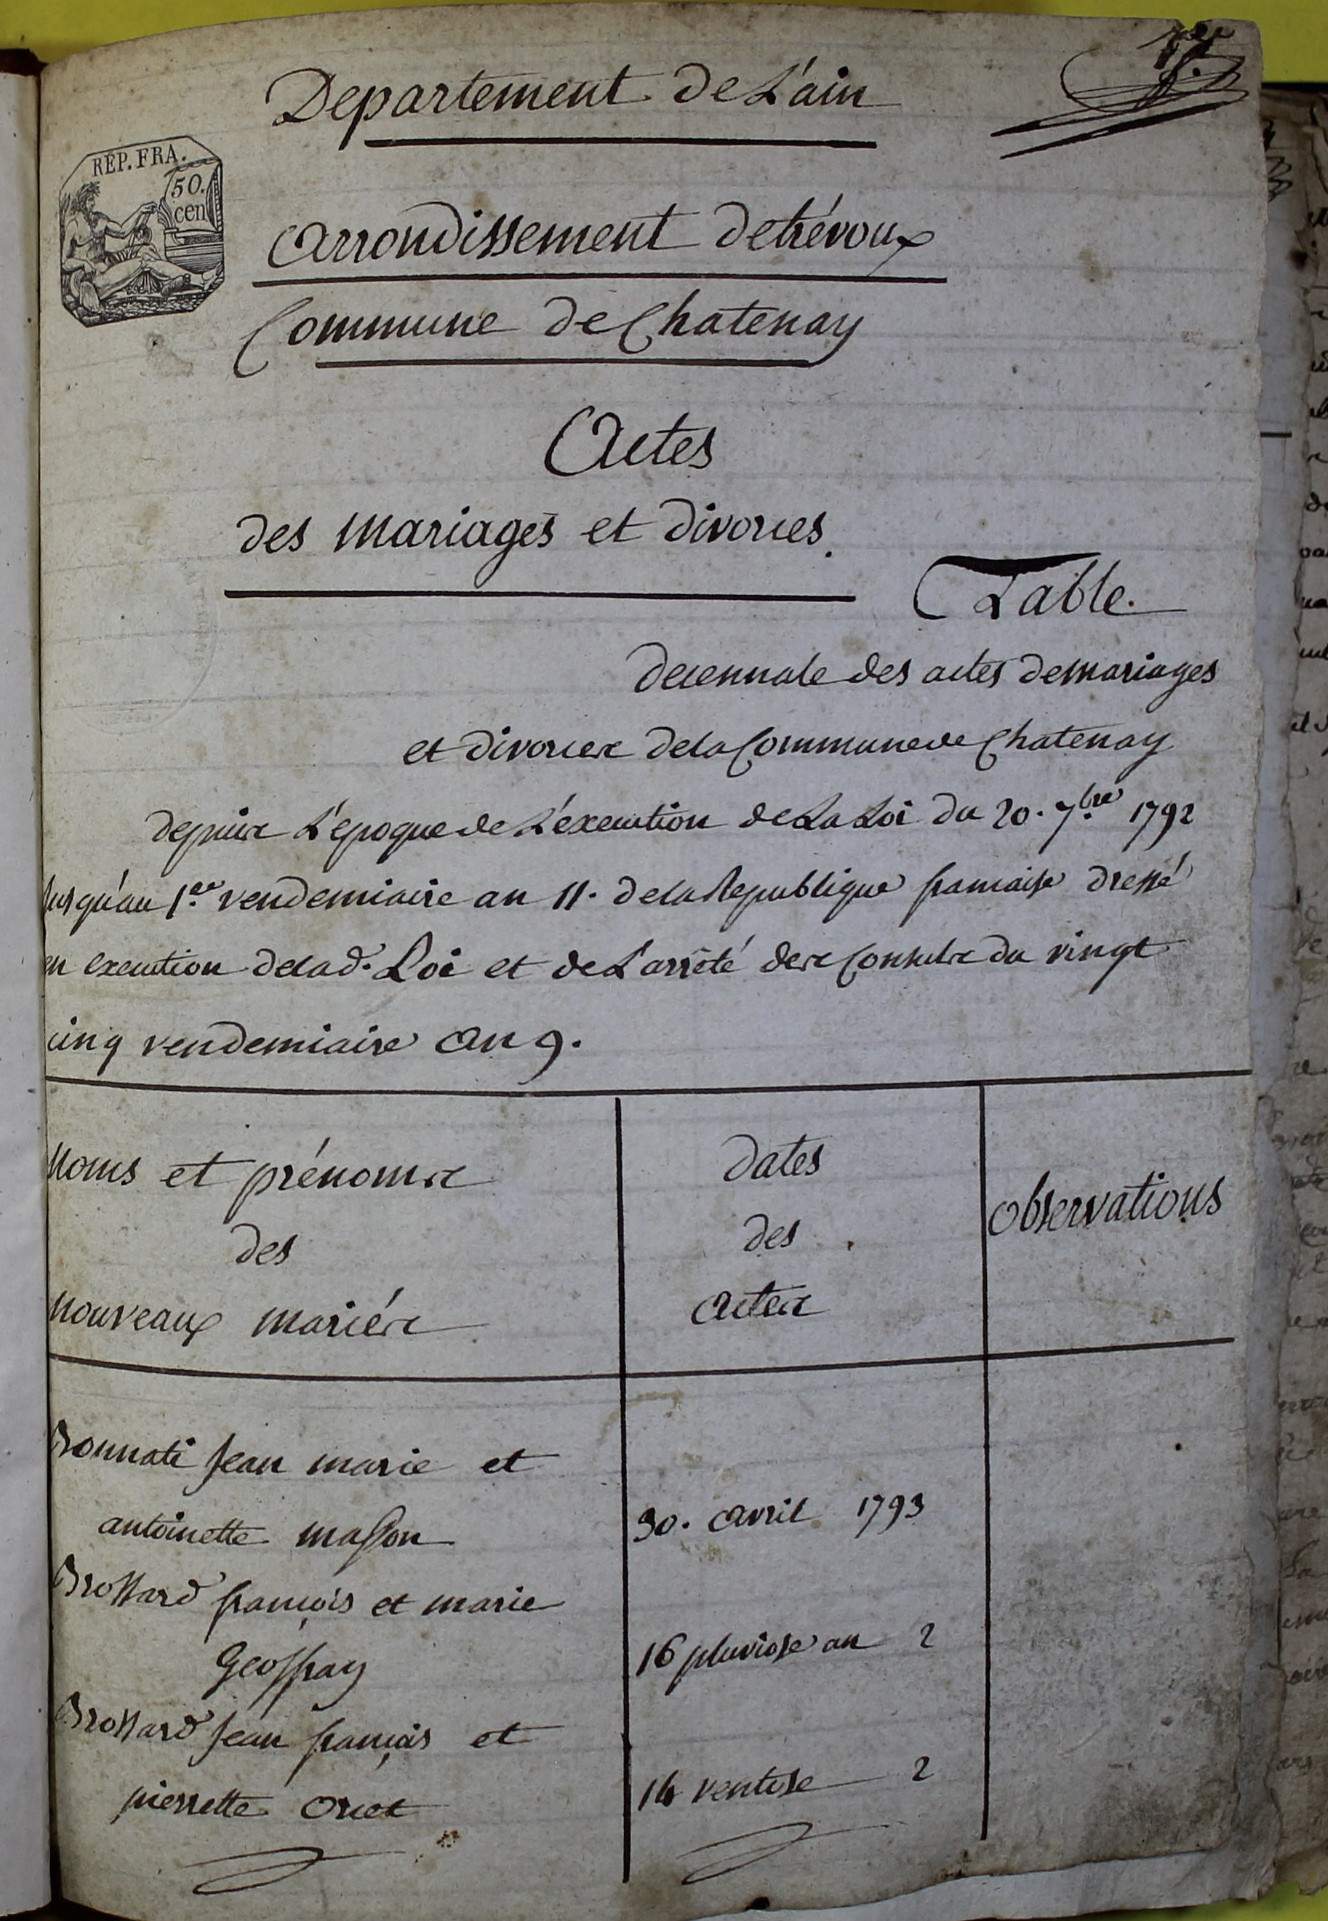 1er
Departement de L'ain
REP. FRA.
50.
cen
arrondissement de trévoux
Commune de Chatenay
Actes
des mariages et divorces.
Table.
decennale des actes de mariages
et divorces de la Commune de Chatenay
depuis L'époque de L'éxecution de La Loi du 20. 7bre 1792
Jusqu'au 1er vendemiaire an 11. de la Republique francaise dressé
en execution de lad. Loi et de L'arrêté des Consuls du vingt
cinq vendemiaire an 9.
Noms et prénoms
des
nouveaux mariés
dates
des
actes
observations
Bonnati Jean marie et
antoinette masson
30. avril 1793
Brossard françois et marie
Geoffray
16 pluviose an 2
Brossard Jean françois et
pierrette
14 ventose 2